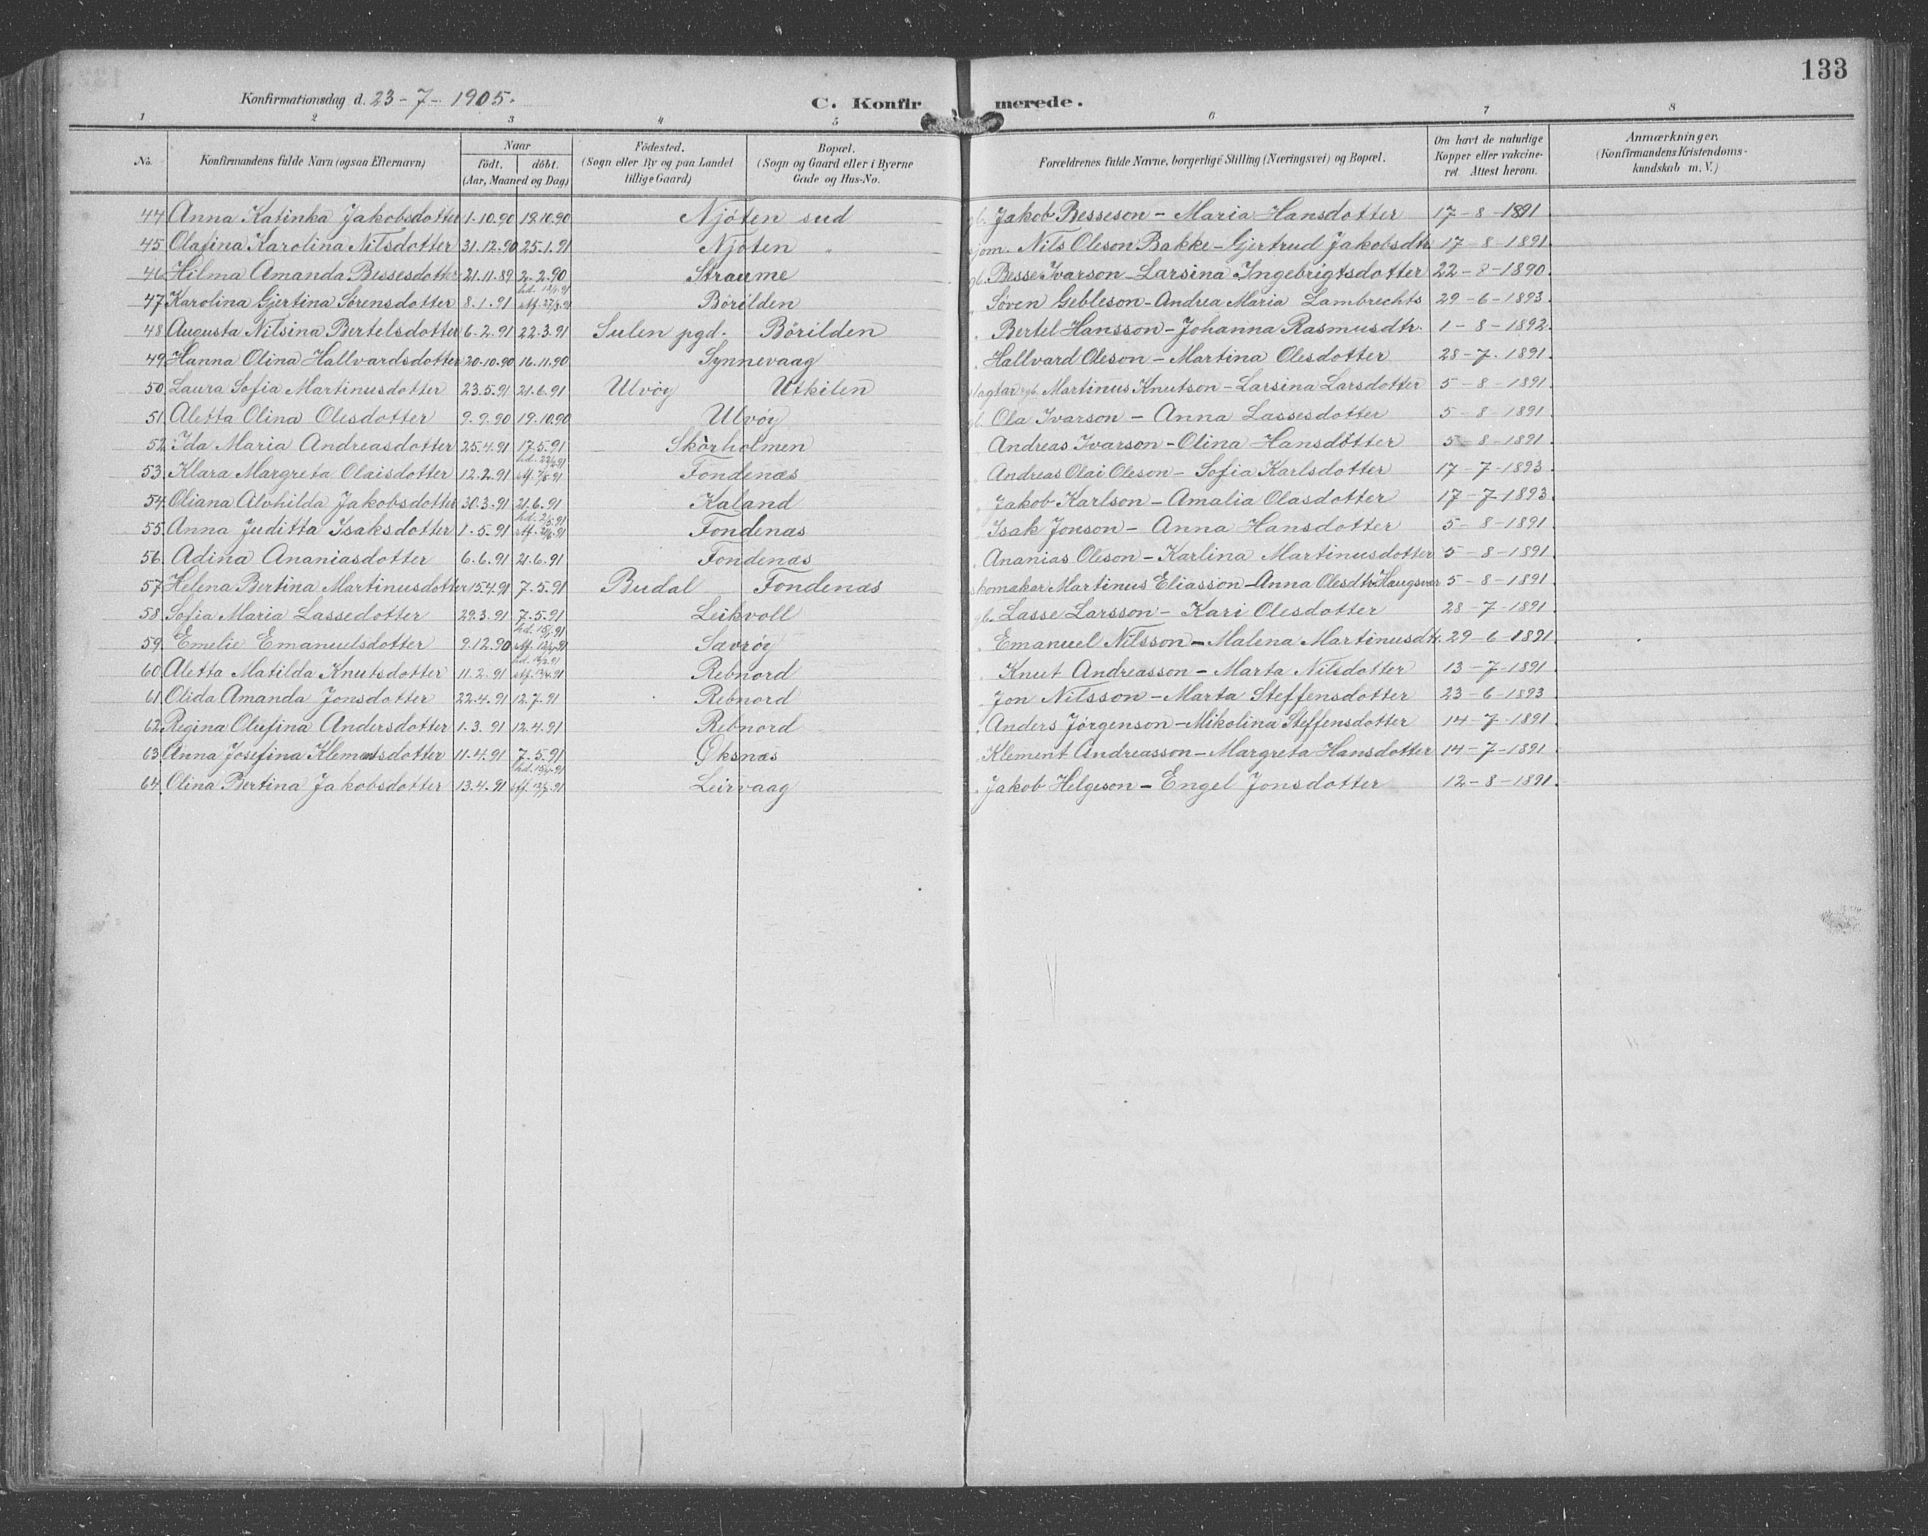 133
Konfirmationsdag d. 23-7-1905. C. Konfirmerede.
1 2 3 4 5 6 7 8
No. Konfirmandens fulde Navn (ogsaa Efternavn) Naar født, døbt. (Aar, Maaned og Dag) Födested. (Sogn eller By og paa Landet tillige Gaard) Bopæl. (Sogn og Gaard eller i Byerne Gade og Hus-No. Forældrenes fulde Navne, borgerlige Stilling (Næringsvei) og Bopæl. Om havt de naturlige Kopper eller vakcineret. Attest herom. Anmærkninger. (Konfirmandens Kristendomskundskab m. V.)
44 Anna Katinka Jakobsdotter 1-10.90 19.10.90 Njöten sud gb. Jakob Besseson - Maria Hansdotter 17-8-1891
45 Olafina Karolina Nilsdotter 31.12.90 25.1.91 Njöten " sjöm. Nils Oleson Bakke - Gjertrud Jakobsdtr. 17-8-1891.
46 Hilma Amanda Bessesdotter 21.11.89 2.2.90 Straume gb. Besse Ivarson - Larsina Ingebrigtsdotter 22-8-1890.
47 Karolina Gjertina Sörensdotter 8.1.91 Börilden " Sören Gebleson - Andrea Maria Lambrechts 29-6-1893.
48 Augusta Nilsina Bertelsdotter 6.2.91 22.3.91 Sulen pgd. Börilden " Bertel Hansson - Johanna Rasmusdtr. 1-8-1892.
49 Hanna Olina Hallvardsdotter 20.10.90 16.11.90 Synnevaag Hallvard Oleson - Martina Olesdotter 28-7-1891.
50 Laura Sofia Martinusdotter 23.5.91 21.6.91 Ulvöy Utkilen slagtar gb. Martinus Knutson - Larsina Larsdotter 5-8-1891.
51. Aletta Olina Olesdotter 9.9.90 19.10.90 Ulvöy gb. Ola Ivarson - Anna Lassesdotter 5-8-1891
52. Ida Maria Andreasdotter 25.4.91 17.5.91 Skorholmen Andreas Ivarson - Olina Hansdotter 5-8-1891
53. Klara Margreta Olaisdotter 12.2.91 Fondenæs " Andreas Olai Oleson - Sofia Karlsdotter 17-7-1893
54. Oliana Alvhilda Jakobsdotter 30.3.91 21.6.91 Kaland " Jakob Karlson - Amalia Olasdotter 17-7-1893.
55. Anna Juditta Isaksdotter 1.5.91 Fondenæs " Isak Jonson - Anna Hansdotter 5-8-1891
56. Adina Ananiasdotter 6.6.91 21.6.91 Fondenæs " Ananias Oleson - Karlina Martinusdotter 5-8-1891.
57. Helena Bertina Martinusdotter 15.4.91 7.5.91 Budal Fondenæs skomakar Martinus Eliasson - Anna Olesdtr. 5-8-1891
58. Sofia Maria Lassedotter 29.3.91 7.5.91 Leikvoll gb. Lasse Larsson - Kari Olesdotter 28-7-1891.
59. Emelie Emanuelsdotter 9.12.90 Sævröy " Emanuel Nilsson - Malena Martinusdtr. 29-6-1891.
60. Aletta Matilda Knutsdotter 11.2.91 Rebnord " Knut Andreasson - Marta Nilsdotter 13-7-1891.
61. Olida Amanda Jonsdotter 22.4.91 12.7.91 Rebnord " Jon Nilsson - Marta Steffensdotter 23-6-1893.
62. Regina Olufina Andersdotter 1.3.91 12.4.91 Rebnord " Anders Jörgenson - Mikolina Steffensdotter 14-7-1891.
63. Anna Josefina Klementsdotter 11.4.91 7.5.91 Öksnæs " Klement Andreasson - Margreta Hansdotter 14-7-1891.
64. Olina Bertina Jakobsdotter 13.4.91 Leirvaag " Jakob Helgeson - Engel Jonsdotter 12-8-1891.